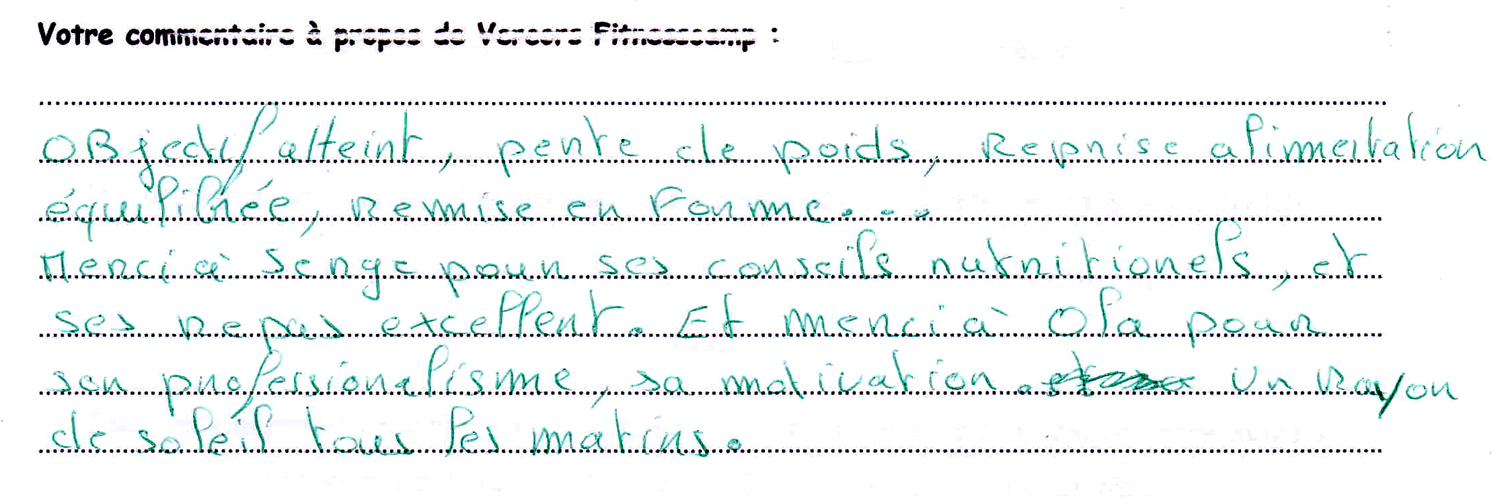 Votre commentaire à propos de Vercors Fitnesscamp :
Objectif atteint, perte de poids, Reprise alimentation
équilibrée, Remise en Forme...
Merci à Serge pour ses conseils nutritionels, et
ses repas excellent. Et merci à Ola pour
son professionalisme, sa motivation. Un Rayon
de soleil tous les matins.